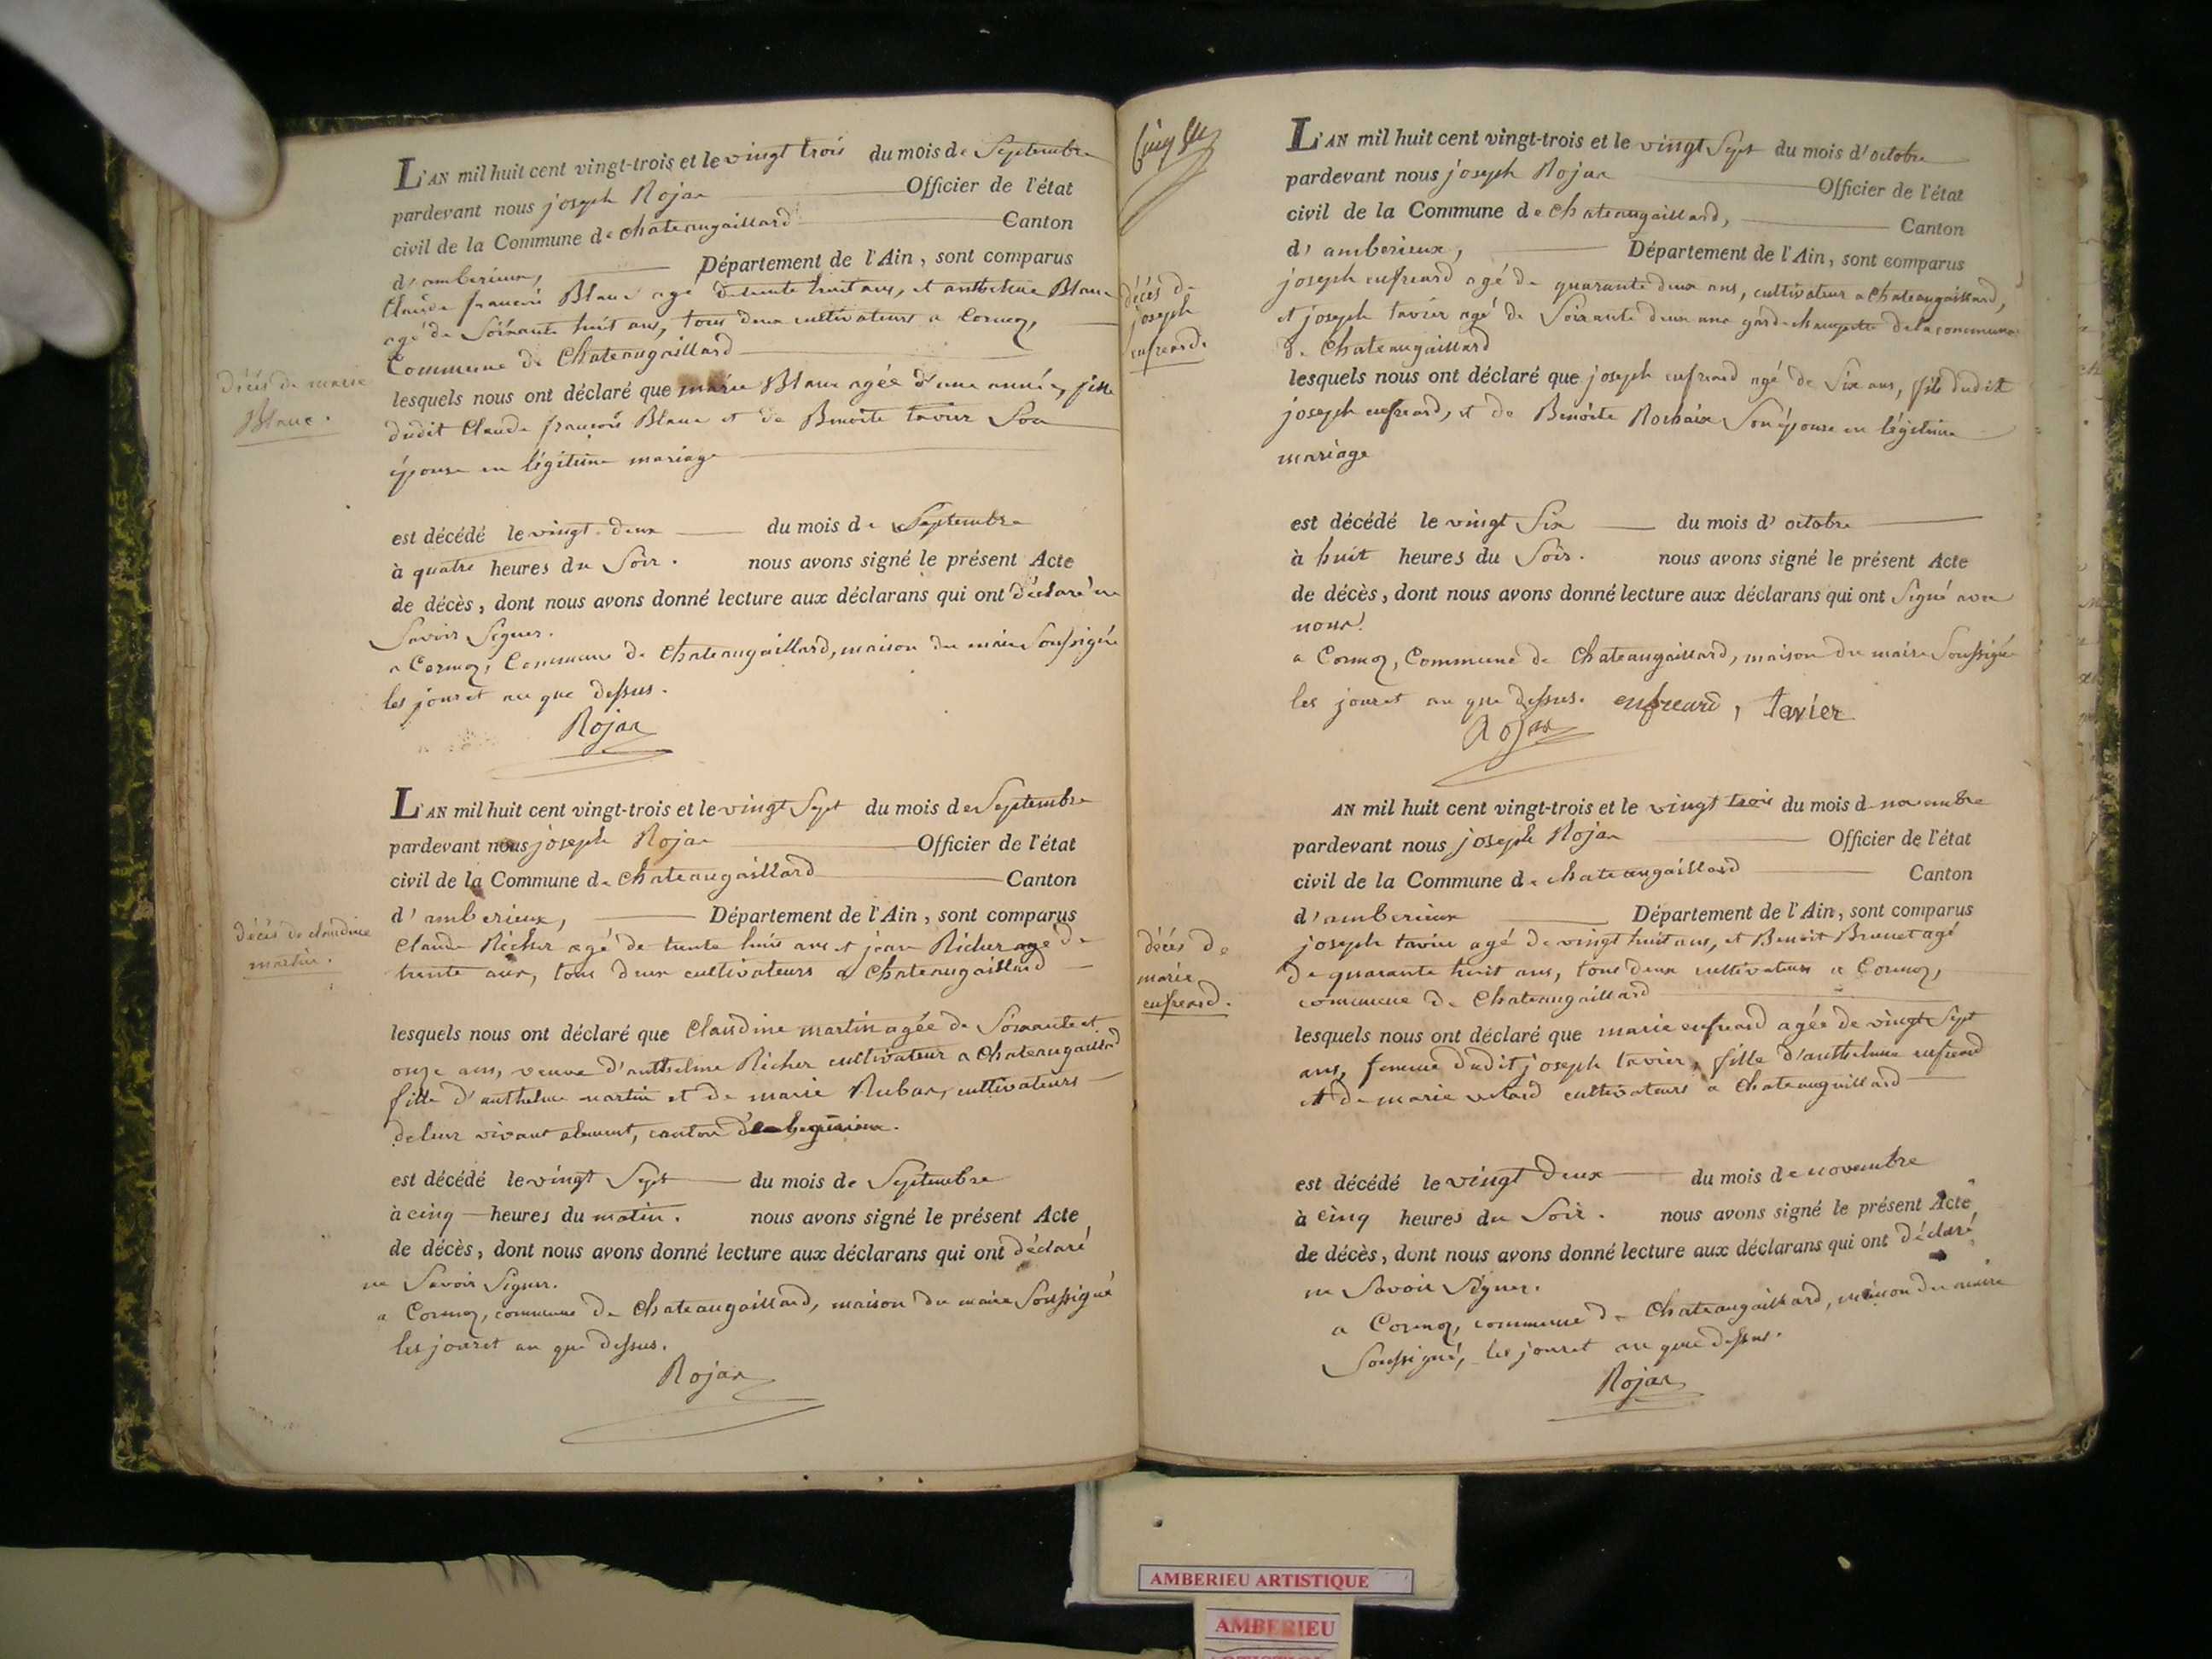 L'AN mil huit cent vingt-trois et le vingt trois du mois de Septembre
pardevant nous joseph Rojan Officier de l'état
civil de la Commune de chateaugaillard Canton
d'amberieux, Département de l'Ain, sont comparus
Claude françois Blanc agé de trente huit ans, et anthelme Blanc
agé de Soixante huit ans, tous deux cultivateurs a Cormoz,
Commune de Chateaugaillard
décès de marie
Blanc.
lesquels nous ont déclaré que marie Blanc agée d'une année, fille
dudit Claude françois Blanc et de Benoite tavier Son
épouse en légitime mariage
est décédé le vingt-deux du mois de Septembre
à quatre heures du Soir. nous avons signé le présent Acte
de décès, dont nous avons donné lecture aux déclarans qui ont déclaré ne
Savoir Signer.
a Cormoz, Commune de Chateaugaillard, maison du maire Soussigné
les jour et an que dessus.
Rojan
L'AN mil huit cent vingt-trois et le vingt Sept du mois de Septembre
pardevant nous joseph Rojan Officier de l'état
civil de la Commune de chateaugaillard Canton
d'amberieux, Département de l'Ain, sont comparus
décès de claudine
martin.
Claude Richer agé de trente huit ans et jean Richer agé de
trente ans, tous deux cultivateurs a chateaugaillard
lesquels nous ont déclaré que Claudine martin agée de Soixante et
onze ans, veuve d'anthelme Richer cultivateur a Chateaugaillard
fille d'anthelme martin et de marie cultivateurs
de leur vivant canton
est décédé le vingt Sept du mois de Septembre
à cinq heures du matin. nous avons signé le présent Acte
de décès, dont nous avons donné lecture aux déclarans qui ont déclaré
ne Savoir Signer.
a Cormoz, commune de Chateaugaillard, maison du maire Soussigné
les jour et an que dessus.
Rojan
L'AN mil huit cent vingt-trois et le vingt Sept du mois d'octobre
pardevant nous joseph Rojan Officier de l'état
civil de la Commune de chateaugaillard, Canton
d'amberieux, Département de l'Ain, sont comparus
décès de
joseph
enfreard.
joseph enfreard agé de quarante deux ans, cultivateur a Chateaugaillard,
et joseph tavier agé de Soixante deux ans garde champetre de la commune
de Chateaugaillard
lesquels nous ont déclaré que joseph enfreard agé de Six ans, fils dudit
joseph enfreard, et de Benoite Son épouse en légitime
mariage
est décédé le vingt Six du mois d'octobre
à huit heures du Soir. nous avons signé le présent Acte
de décès, dont nous avons donné lecture aux déclarans qui ont Signé avec
nous.
a Cormoz, Commune de Chateaugaillard, maison du maire Soussigné
les jour et an que dessus. enfreard, tavier
Rojan
AN mil huit cent vingt-trois et le vingt trois du mois de novembre
pardevant nous joseph Rojan Officier de l'état
civil de la Commune de chateaugaillard Canton
d'amberieux Département de l'Ain, sont comparus
décès de
marie
enfreard.
joseph tavier agé de vingt huit ans, et Benoit Brunet agé
de quarante huit ans, tous deux cultivateurs a Cormoz,
commune de Chateaugaillard
lesquels nous ont déclaré que marie enfreard agée de vingt Sept
ans, femme dudit joseph tavier, fille d'anthelme enfreard
et de marie cultivateurs a Chateaugaillard
est décédé le vingt deux du mois de novembre
à cinq heures du Soir. nous avons signé le présent Acte
de décès, dont nous avons donné lecture aux déclarans qui ont déclaré
ne Savoir Signer.
a Cormoz, commune de Chateaugaillard, maison du maire
Soussigné, les jour et an que dessus.
Rojan
AMBERIEU ARTISTIQUE
AMBERIEU